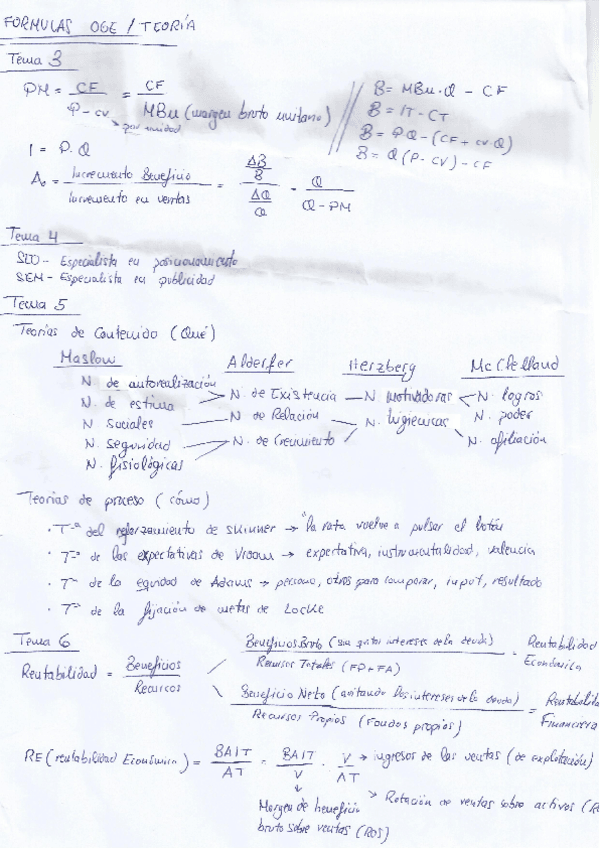 FORMULAS OGE / TEORÍA
Tema 3
PM = CF / P - cv = CF / MBu (margen bruto unitario)
por unidad
B = MBu · Q - CF
B = IT - CT
B = P·Q - (CF + cv·Q)
B = Q (P - CV) - CF
I = P. Q
Ao = Incremento Beneficio / Incremento en ventas = ΔB/B / ΔQ/Q = Q / Q - PM
Tema 4
SEO - Especialista en posicionamiento
SEM - Especialista en publicidad
Tema 5
Teorías de Contenido (Qué)
Maslow Alderfer Herzberg McClelland
N. de autorealización
N. de estima
N sociales
N. seguridad
N. fisiológicas
N. de Existencia
N. de Relación
N. de Crecimiento
N. motivadoras
N. higienicas
N. logros
N. poder
N. afiliación
Teorías de proceso (cómo)
· Tª del reforzamiento de Skinner → "la rata vuelve a pulsar el botón
· Tª de las expectativas de Vroom → expectativa, instrumentalidad, valencia
· Tª de la equidad de Adams → persona, otros para comparar, input, resultado
· Tª de la fijación de metas de Locke
Tema 6
Rentabilidad = Beneficios / Recursos
Beneficios Bruto (sin quitar intereses de la deuda) / Recursos Totales (FP+FA) = Rentabilidad Económica
Beneficio Neto (quitando los intereses de la deuda) / Recursos Propios (Fondos propios) = Rentabilida Financiera
RE (rentabilidad Económica) = BAIT / AT = BAIT / V · V / AT → ingresos de las ventas (de explotación)
Margen de beneficio bruto sobre ventas (ROS)
Rotación de ventas sobre activos (R